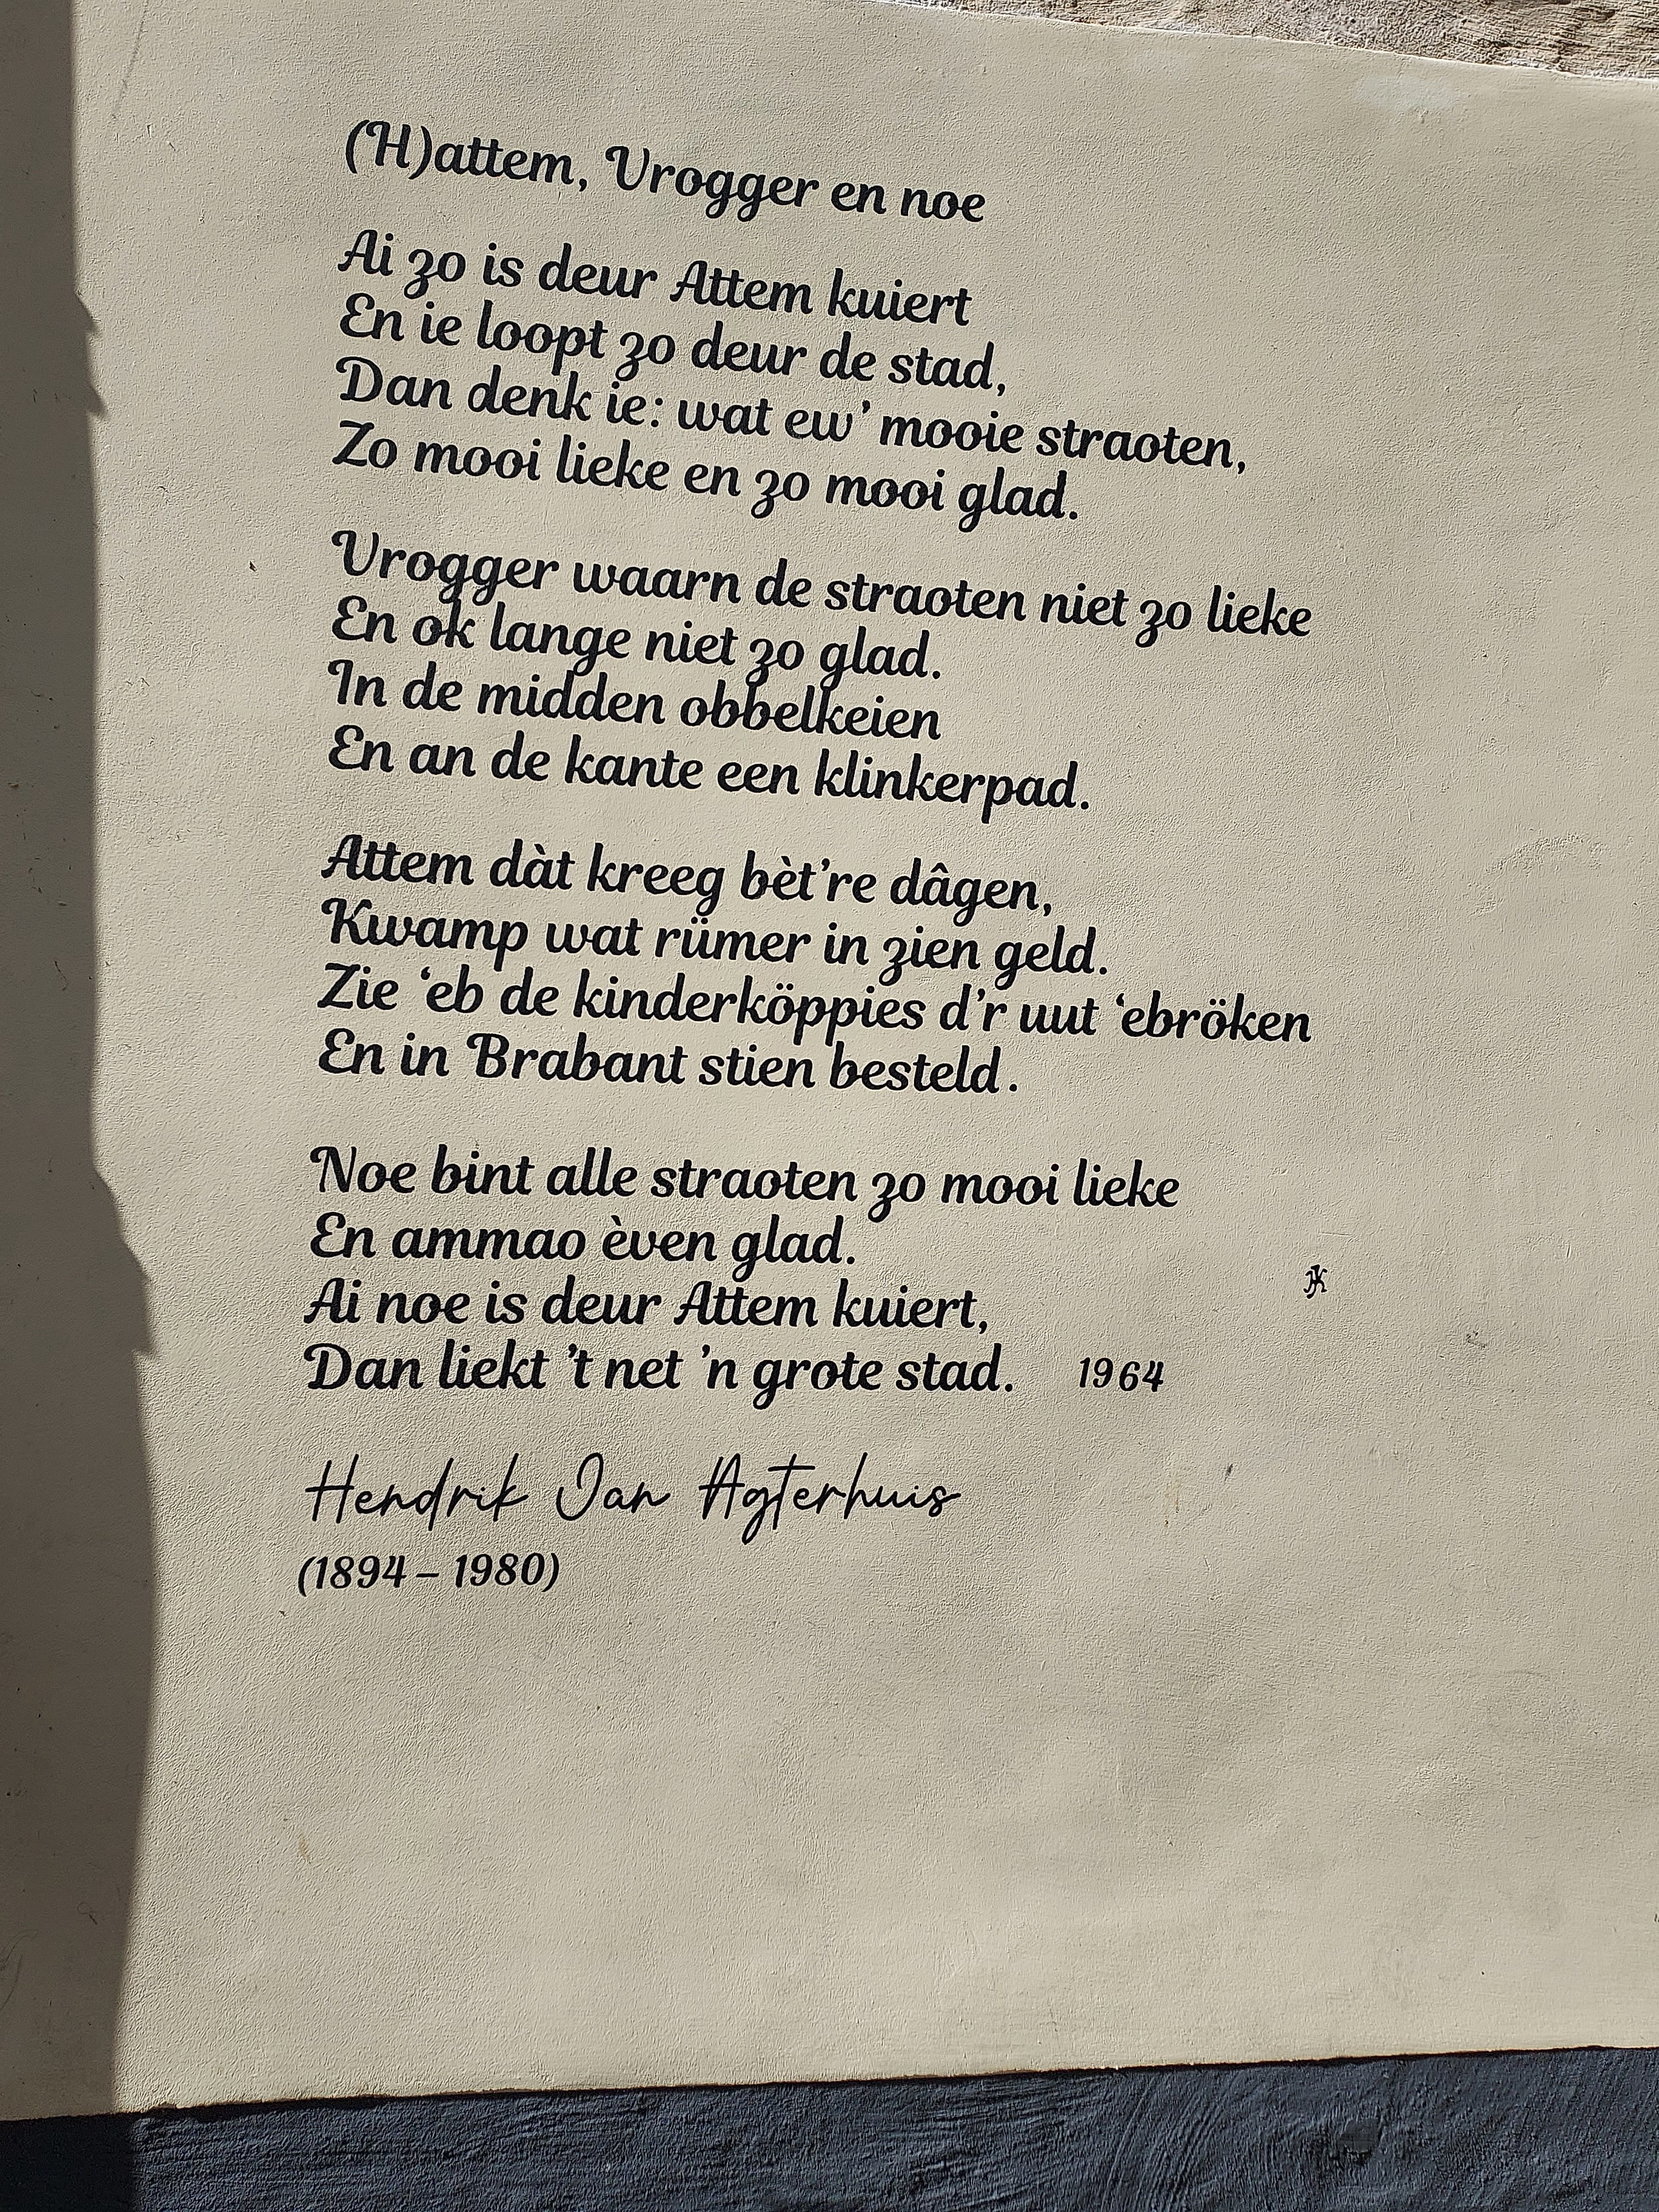 (H)attem, Vrogger en noe
Ai zo is deur Attem kuiert
En ie loopt zo deur de stad,
Dan denk ie: wat ew' mooie straoten,
Zo mooi lieke en zo mooi glad.
Vrogger waarn de straoten niet zo lieke
En ok lange niet zo glad.
In de midden obbelkeien
En an de kante een klinkerpad.
Attem dàt kreeg bèt're dâgen,
Kwamp wat rümer in zien geld.
Zie 'eb de kinderköppies d'r uut 'ebröken
En in Brabant stien besteld.
Noe bint alle straoten zo mooi lieke
En ammao èven glad.
Ai noe is deur Attem kuiert,
Dan liekt 't net 'n grote stad. 1964
Hendrik Jan Agterhuis
(1894 – 1980)